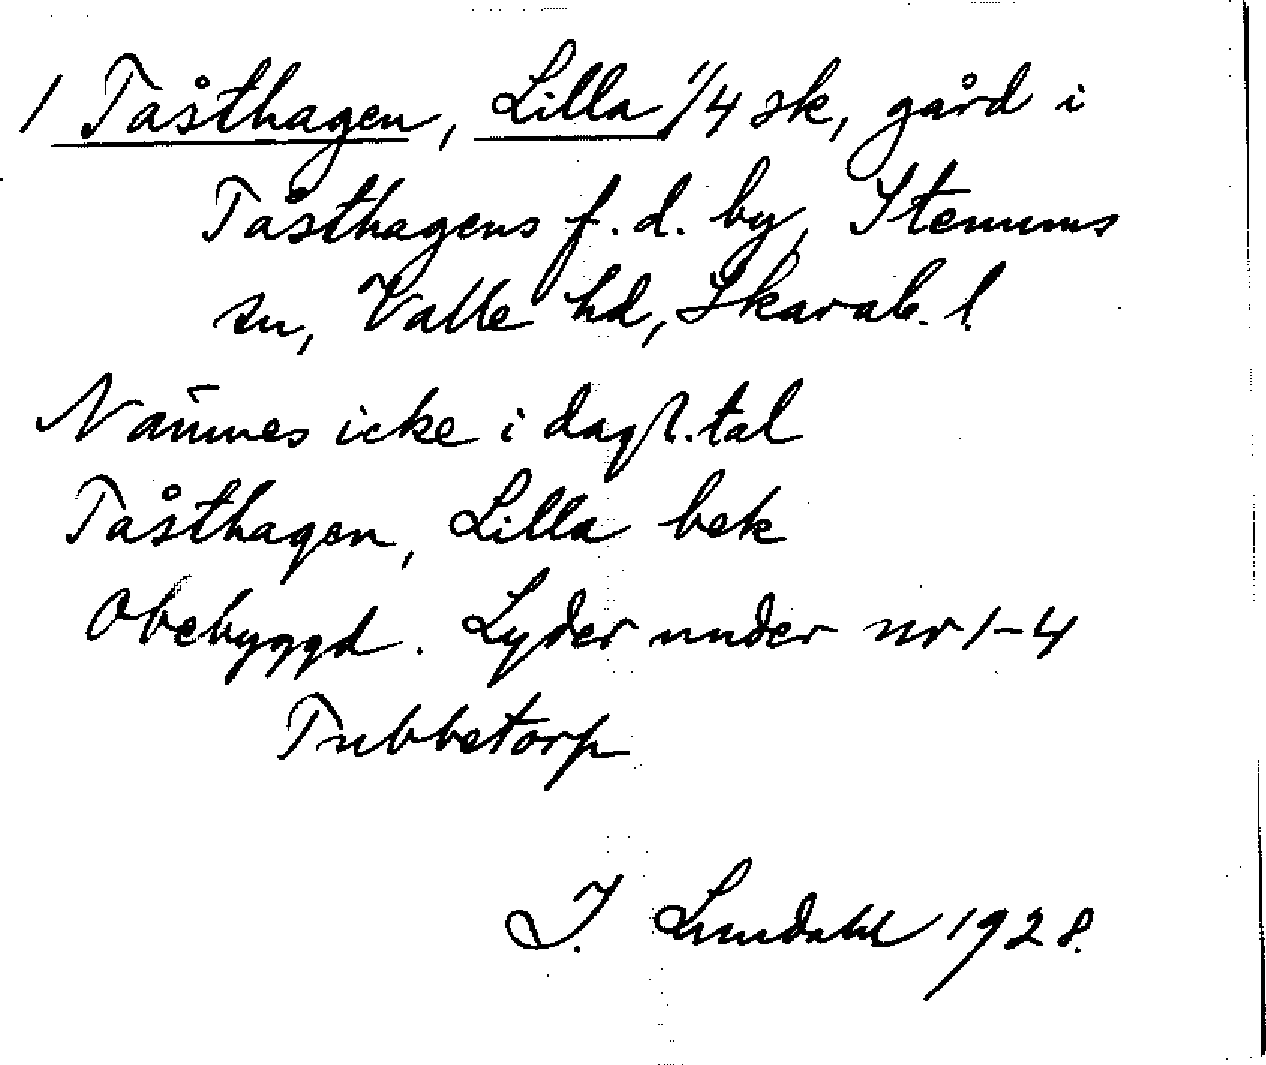 1 Tåsthagen, Lilla 1/4 sk, gård i
Tåsthagens f.d. by, Stenums
sn, Valle hd, Skarab. l.
Nämnes icke i dagl. tal
Tåsthagen, Lilla bek
Obebyggd. Lyder under nr 1-4
Trubbetorp
I. Lundahl 1928.